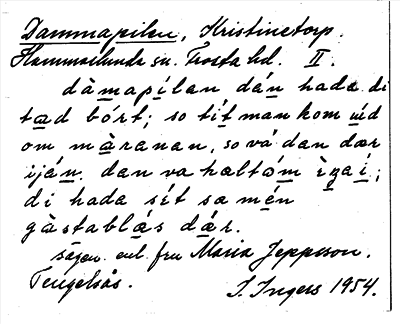 Dammapilen, Kristinetorp.
Hammarlunda sn. Frosta hd. II.
dàmapílan dán hada di
tæd bórt; so tit man kom uíd
om màranan, so vá dan dær
iján. dan va hæltóm ègaí;
di hada sét sæ mén
gàstablás dár.
sägen enl. fru Maria Jeppsson.
Tengelsås. I. Ingers 1954.